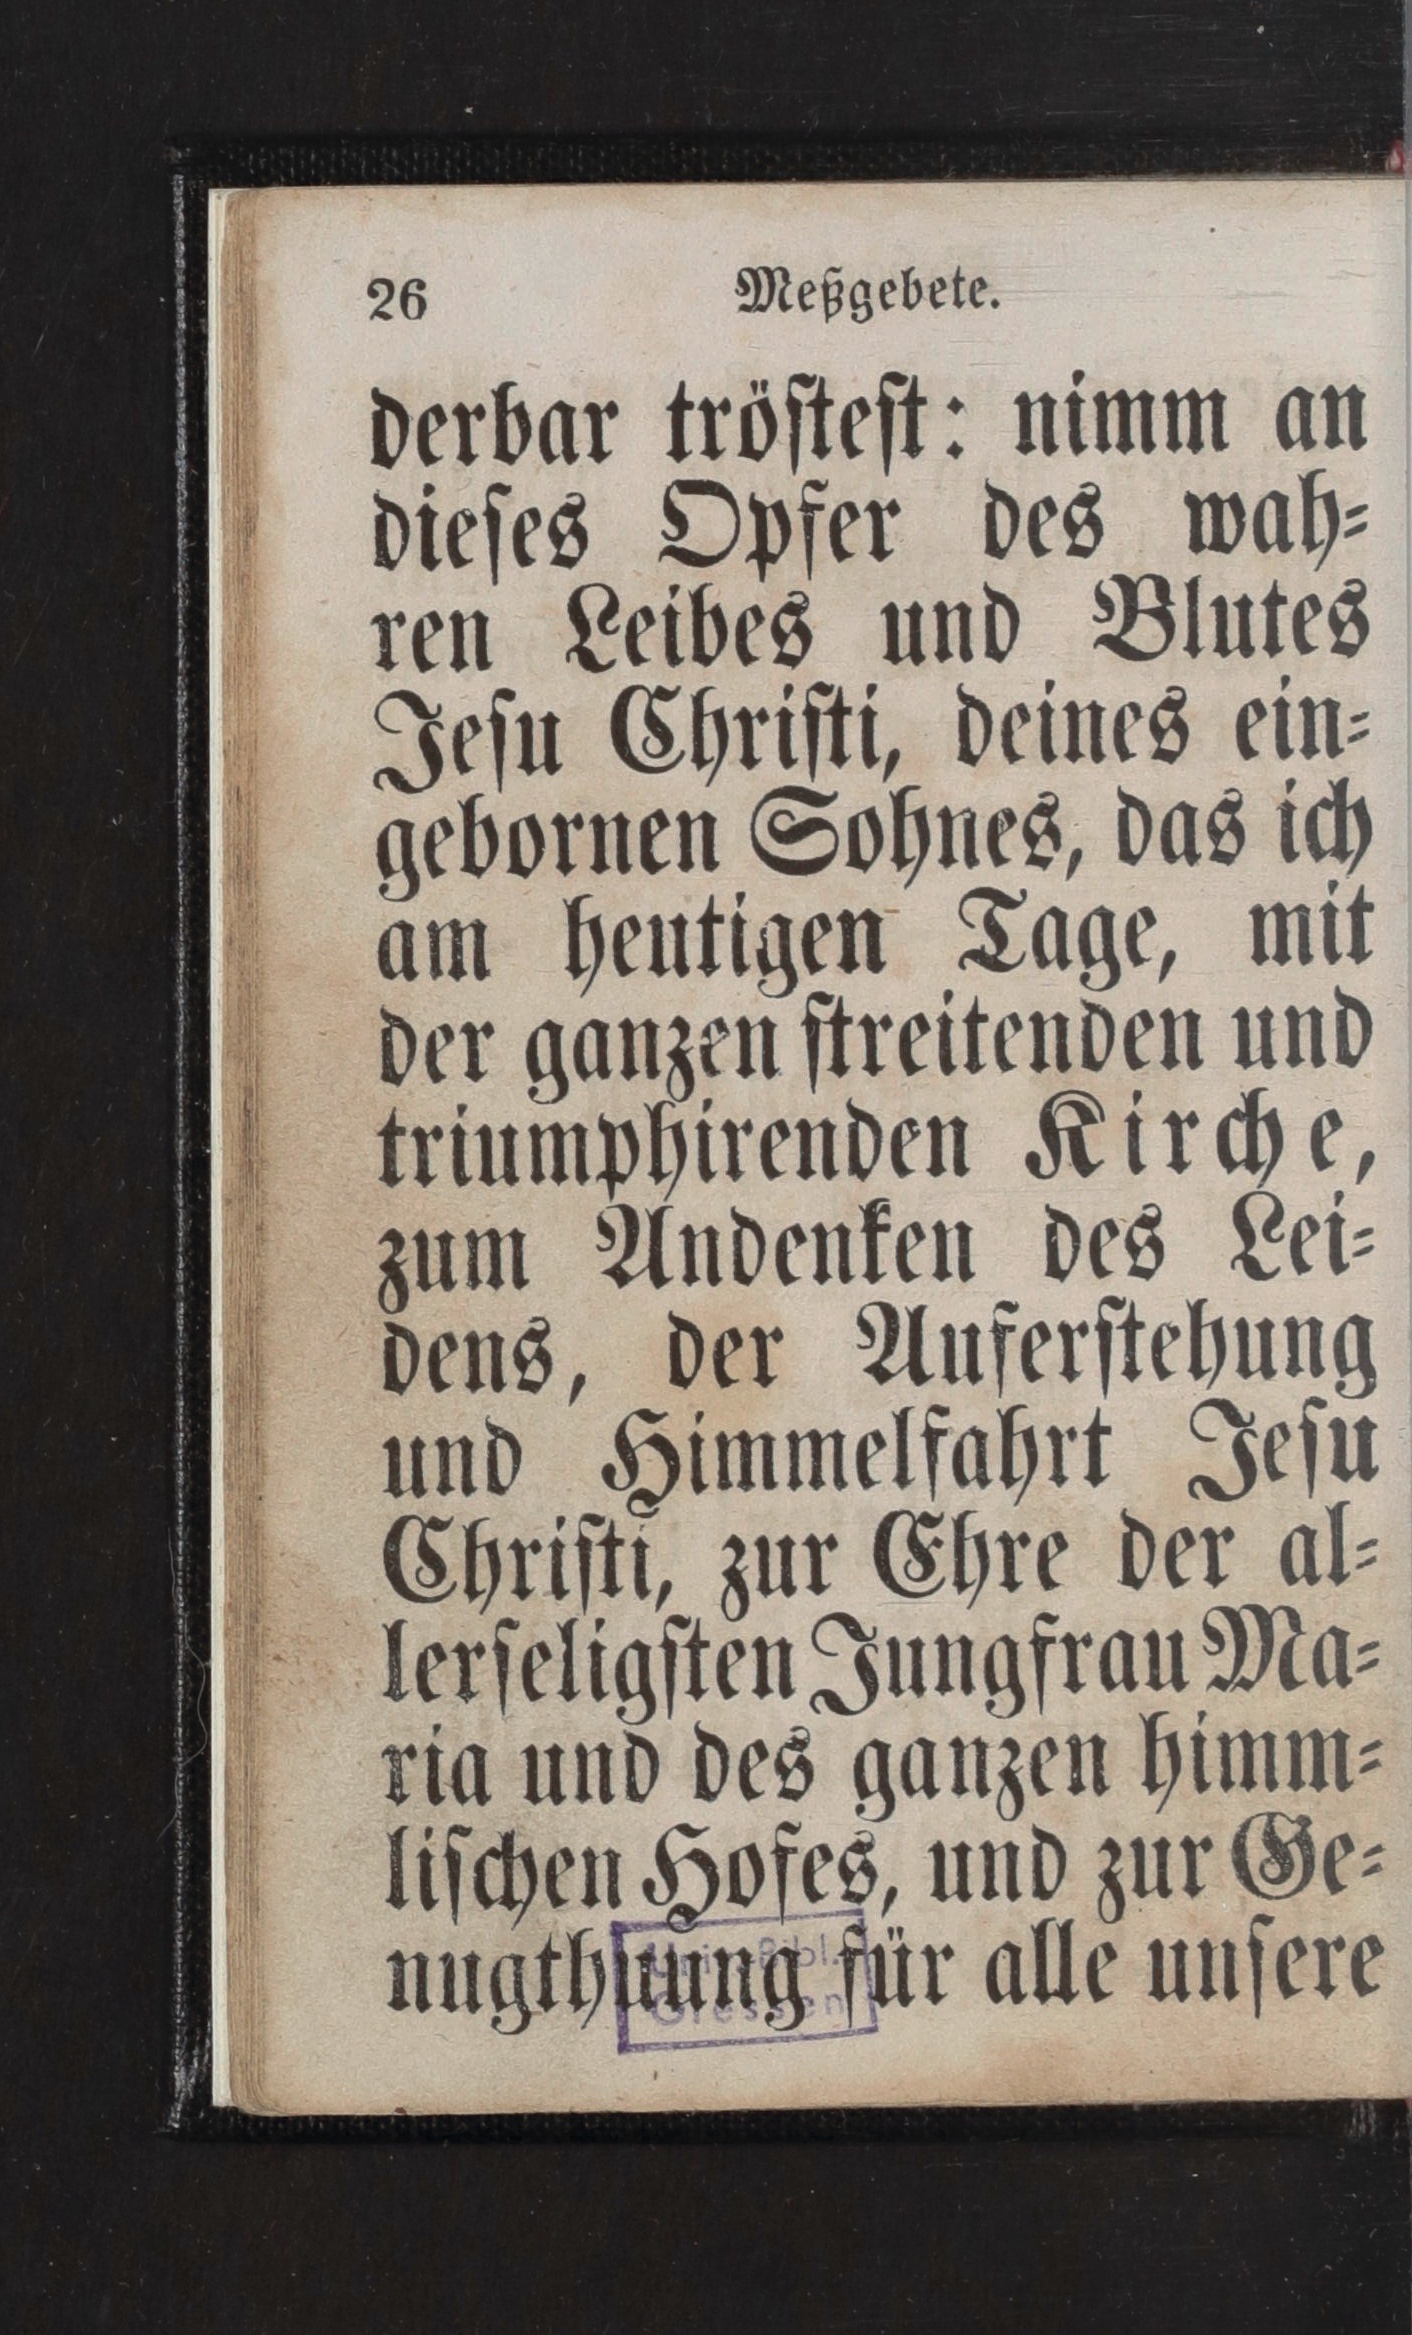 26
Meßgebete.
derbar tröſteſt: nimm an
dieſes Opfer des wah⸗
ren Leibes und Blutes
Jeſu Chriſti, deines ein⸗
gebornen Sohnes, das ich
am heutigen Tage, mit
der ganzen ſtreitenden und
triumphirenden Kirche,
zum Andenken des Lei⸗
dens, der Auferſtehung
und Himmelfahrt Jeſu
Chriſti, zur Ehre der al⸗
lerſeligſten Jungfrau Ma⸗
ria und des ganzen himm⸗
liſchen Hofes, und zur Ge⸗
nugthuung für alle unſere
Univ.-Bibl.
Giessen